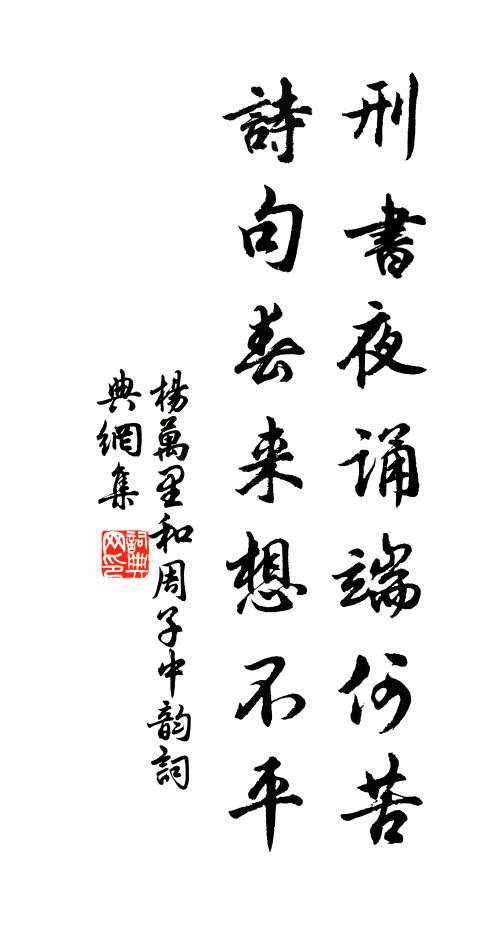 刑書夜诵端何苦
詩句春来想不平
楊萬里和周子中韵詞
典網集
詞典网印